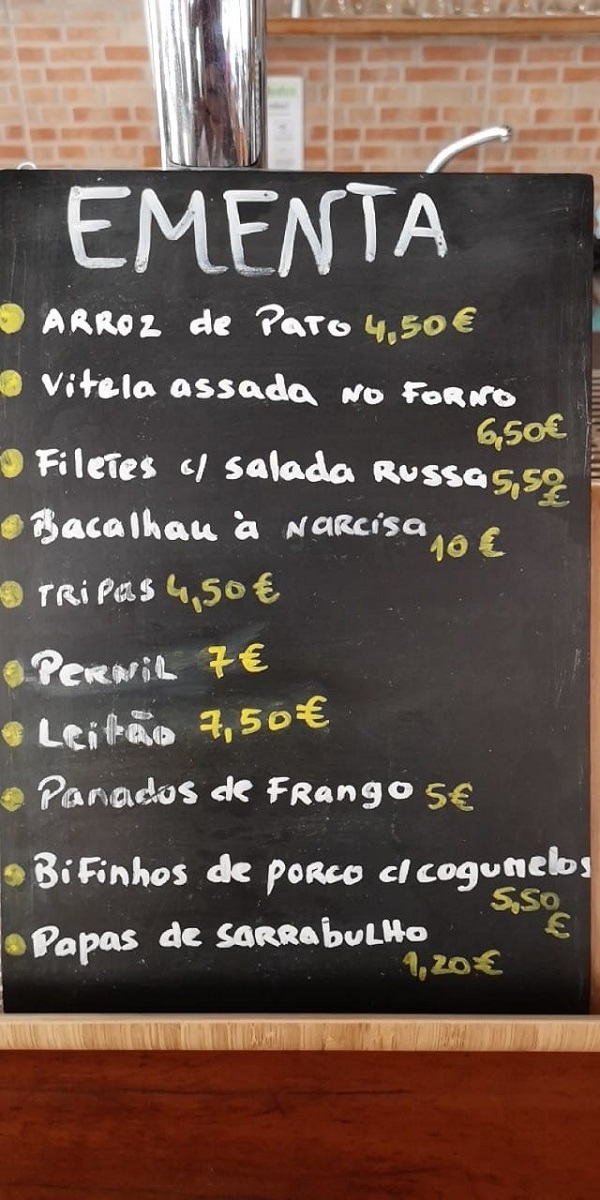 EMENTA
ARROZ de Pato 4,50€
Vitela assada NO FORNO
6,50€
Filetes c/ salada Russa 5,50
€
Bacalhau à Narcisa
10€
TRIPAS 4,50€
PERNIL 7€
Leitão 7,50€
Panados de Frango 5€
Bifinhos de porco c/cogumelos
5,50
€
Papas de SARRABULHO
1,20€